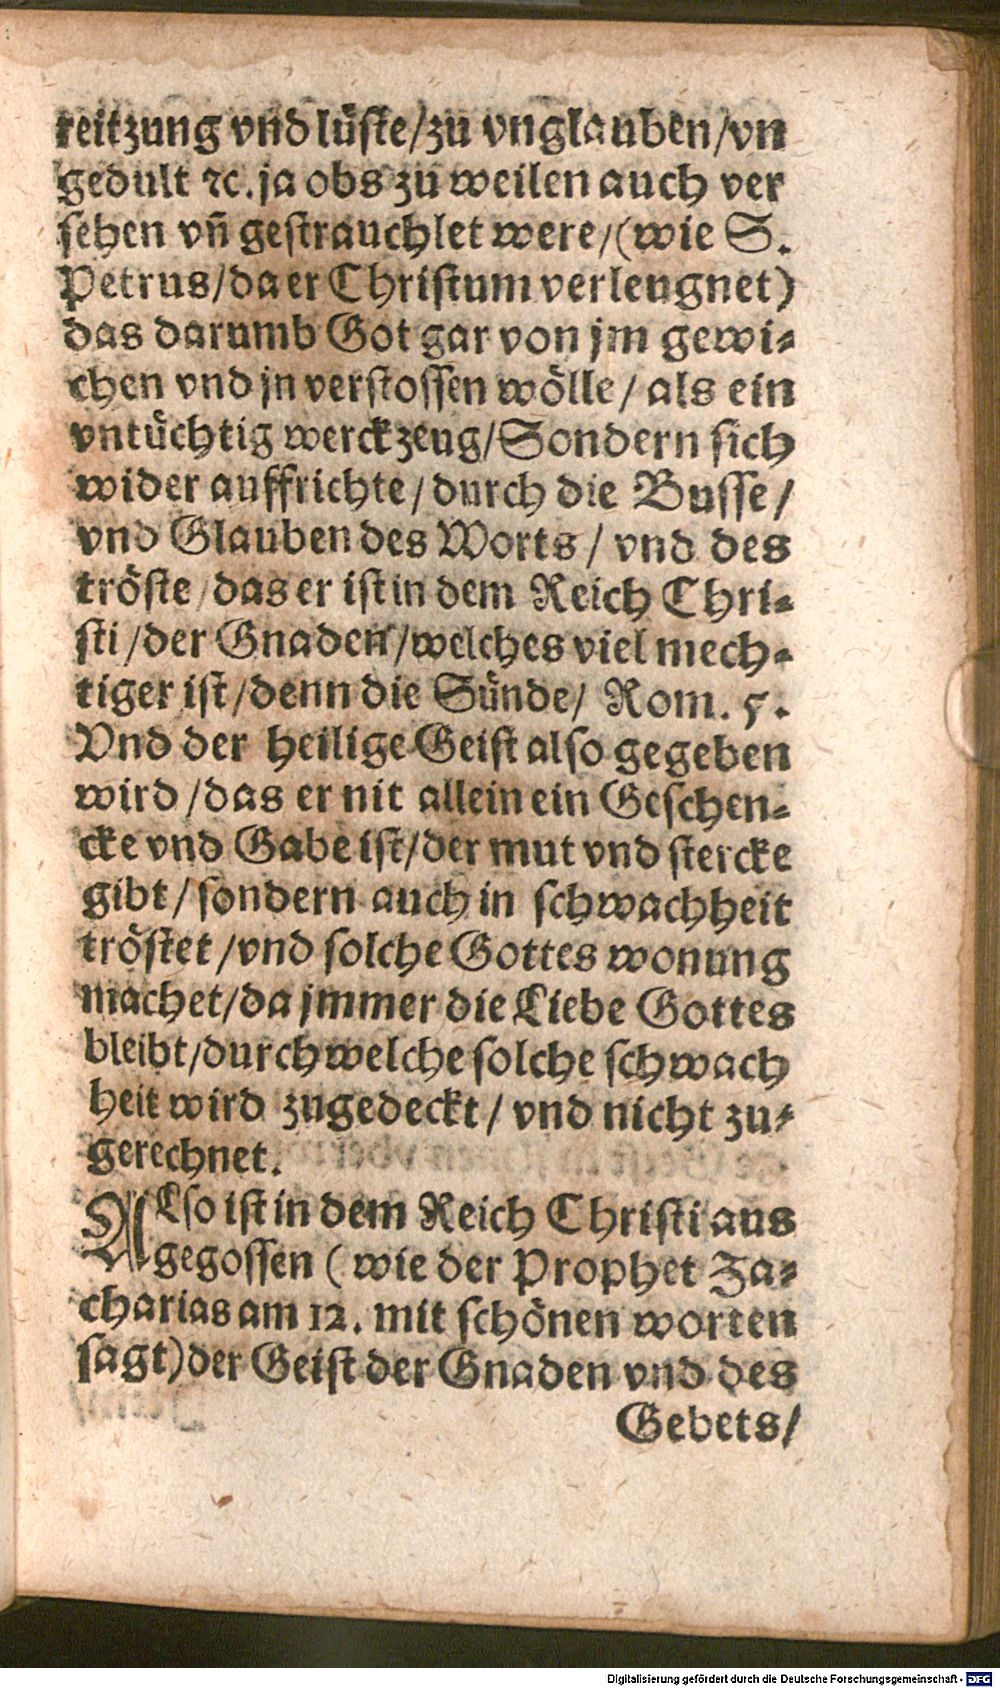 reitzung vnd lüste/zu vnglauben/vn
gedult ⁊c. ja obs zu weilen auch ver
sehen vñ gestrauchlet were/(wie S.
Petrus/da er Christum verleugnet)
das darumb Got gar von jm gewi-
chen vnd jn verstossen wölle/als ein
vntüchtig werckzeug/Sondern sich
wider auffrichte/durch die Busse/
vnd Glauben des Worts/vnd des
tröste/das er ist in dem Reich Chri-
sti/der Gnaden/welches viel mech-
tiger ist/denn die Sünde/Rom. 5.
Vnd der heilige Geist also gegeben
wird/das er nit allein ein Geschen-
cke vnd Gabe ist/der mut vnd stercke
gibt/sondern auch in schwachheit
tröstet/vnd solche Gottes wonung
machet/da jmmer die Liebe Gottes
bleibt/durch welche solche schwach
heit wird zugedeckt/vnd nicht zu-
gerechnet.
ALso ist in dem Reich Christi aus
gegossen (wie der Prophet Za-
charias am 12. mit schönen worten
sagt) der Geist der Gnaden vnd des
Gebets/
Digitalisierung gefördert durch die Deutsche Forschungsgemeinschaft - DFG